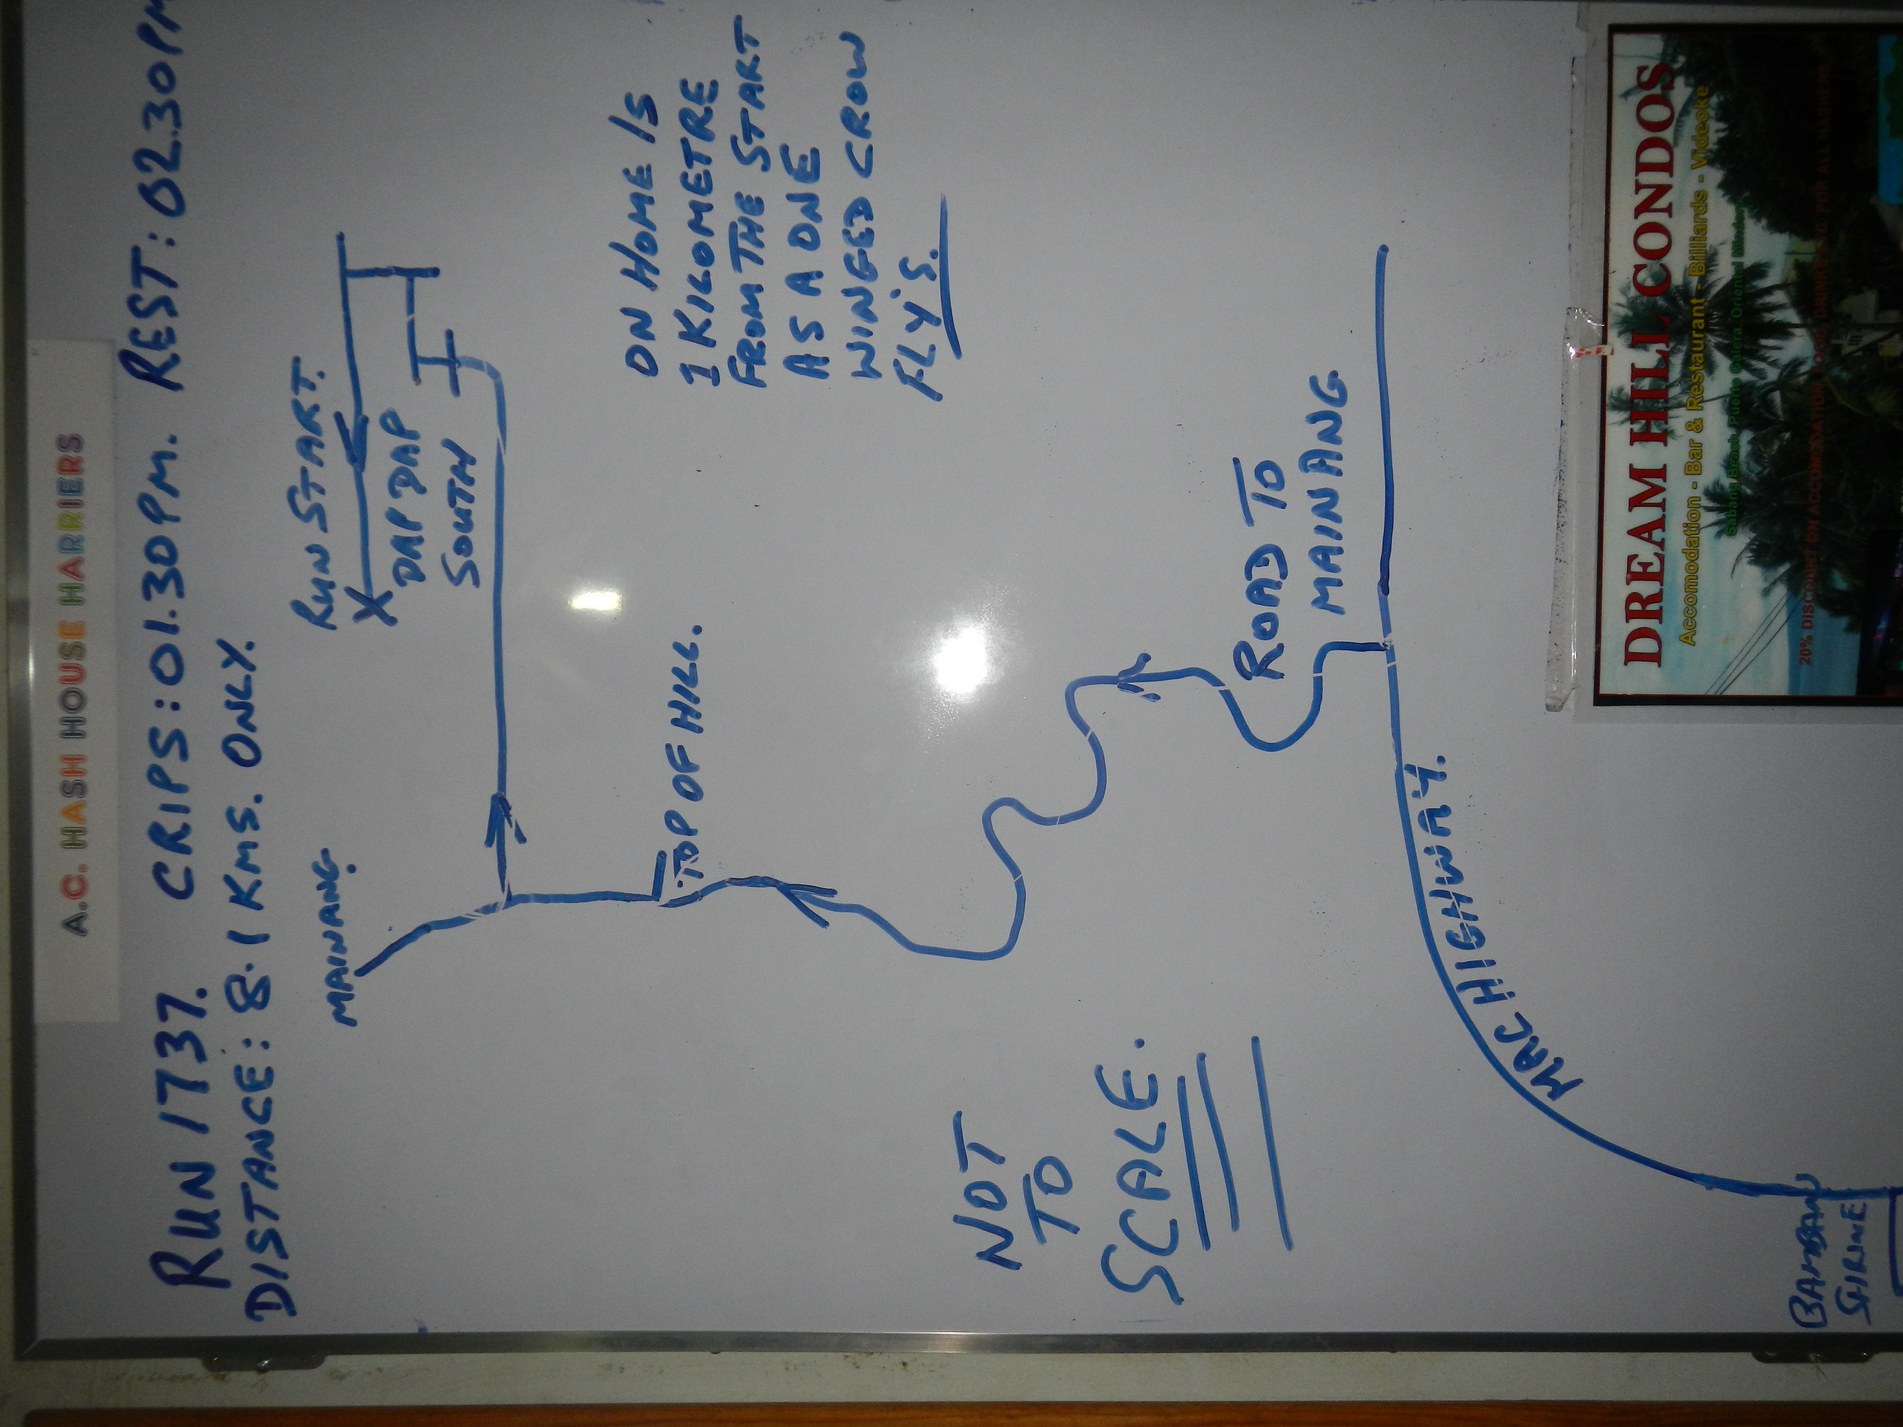 A.C. HASH HOUSE HARRIERS
RUN 1737. CRIPS: 01.30PM. REST: 02.30PM
DISTANCE: 8.1 KMS. ONLY.
MAINANG.
RUN START.
X
DAPDAP
SOUTH
TOP OF HILL.
ON HOME IS
1 KILOMETRE
FROM THE START
AS A ONE
WINGED CROW
FLY'S.
NOT
TO
SCALE.
ROAD TO
MAINANG
MAC HIGHWAY.
BAMBAN
SHRINE
DREAM HILL CONDOS
Accomodation - Bar & Restaurant - Billiards - Videoke
20% DISCOUNT ON ACCOMODATION